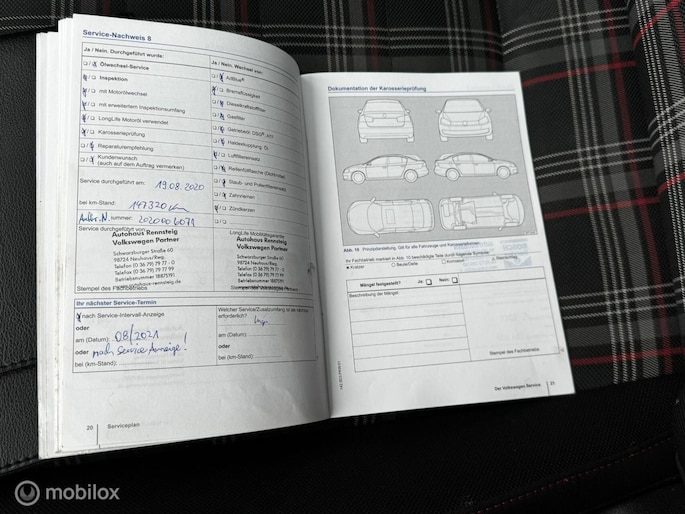 Service-Nachweis 8
Ja / Nein, Durchgeführt wurde:
Ölwechsel-Service
Inspektion
mit Motorölwechsel
mit erweitertem Inspektionsumfang
LongLife Motoröl verwendet
Karosserieprüfung
Reparaturempfehlung
Kundenwunsch
(auch auf dem Auftrag vermerken)
Ja / Nein, Wechsel von:
AdBlue®
Bremsflüssigkeit
Dieselkraftstofffilter
Gasfilter
Getriebeöl, DSG®,
Haldexkupplung, Öl
Luftfiltereinsatz
Reifenfüllflasche (Dichtmittel)
Staub- und Pollenfiltereinsatz
Zahnriemen
Zündkerzen
Service durchgeführt am: 19.08.2020
bei km-Stand: 147320 km
nummer: 2020006071
Service durchgeführt von
Autohaus Rennsteig
Volkswagen Partner
Schwarzburger Straße 60
98724 Neuhaus/Rwg.
Telefon (0 36 79) 79 77 - 0
Telefax (0 36 79) 79 77 99
Betriebsnummer 1887591
Stempel des Fachbetriebs
LongLife Mobilitätsgarantie
Autohaus Rennsteig
Volkswagen Partner
Schwarzburger Straße 60
98724 Neuhaus/Rwg.
Ihr nächster Service-Termin
nach Service-Intervall-Anzeige
oder
am (Datum): 08/2021
oder nach Service Anzeige!
bei (km-Stand):
Welcher Service/Zusatzumfang ist als nächstes
erforderlich?
am (Datum):
bei (km-Stand):
20 Serviceplan
Dokumentation der Karosserieprüfung
Abb. 10 Prinzipdarstellung. Gilt für alle Fahrzeuge und Karosserieformen
Ihr Fachbetrieb markiert in Abb. 10 beschädigte Teile durch folgende Symbole:
Kratzer
Beule/Delle
Korrosion
Steinschlag
Mängel festgestellt? Ja: Nein:
Beschreibung der Mängel:
Stempel des Fachbetriebs
Der Volkswagen Service 21
mobilox